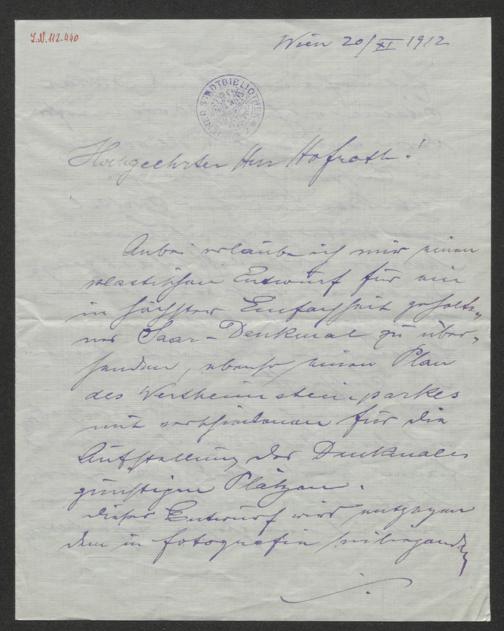 I.N. 112.440
Wien 20/XI 1912
STADTBIBLIOTHEK
Hochgeehrter Herr Hofrath!
Anbei erlaube ich mir einen
plastischen Entwurf für ein
in höchster Einfachheit gehalte-
nes Saar-Denkmal zu über-
senden, ebenso einen Plan
des Wertheimsteinparkes
mit verschiedenen für die
Aufstellung des Denkmales
günstigen Plätzen.
Dieser Entwurf wird entgegen
dem in Fotografie beiliegenden